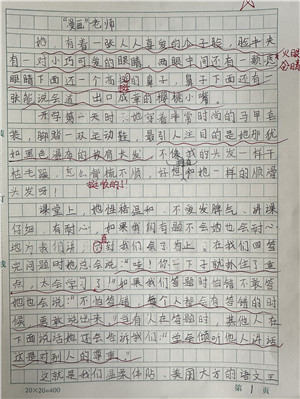 “漫画”老师
她有着一张人人喜爱的瓜子脸，脸中央
有一对小巧可爱的眼睛，两眼中间还有一颗痣，
眼睛下面还一个高挺的鼻子，鼻子下面还有一
张能说会道、出口成章的樱桃小嘴。
火眼
金睛
开学第一天时，她穿着非常时尚的子甲毛
装，脚踏一双运动鞋，最引人注目的是她那犹
如黑色瀑布的秀肩长发，不像我的头发一样干
枯毛躁，怎么梳都不顺，好想和她一样的顺滑
头发呀！
课堂上，她性格温和，不爱发脾气，讲课
仔细，有耐心，如果我们有题不会她也会耐心
地为我们讲，时我们会了为止。在我们回答
完问题时她总会说：“哇！你一下子就抓住了重
点，太会学习了！”如果我们答题时怕错不敢答
她也会说：“不怕答错，每个人都会有答错的时
候，勇敢说出来。”当有人在答题时，其他人在
下面说话她还会告诉我们：“学会倾听他人讲话
还是对别人的尊重。”
这就是我们温柔体贴、美丽大方的语文王
20×20=400
第1页